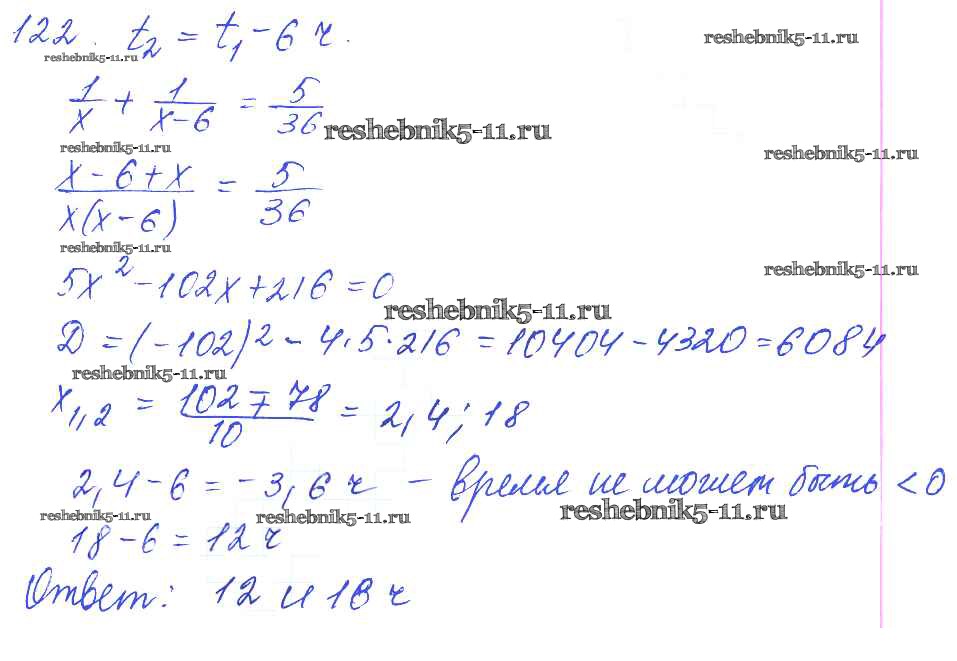 122. t₂ = t₁ - 6 ч.
reshebnik5-11.ru
reshebnik5-11.ru
1/x + 1/(x-6) = 5/36
reshebnik5-11.ru
reshebnik5-11.ru
reshebnik5-11.ru
(x - 6 + x)/(x(x - 6)) = 5/36
reshebnik5-11.ru
reshebnik5-11.ru
5x² - 102x + 216 = 0
reshebnik5-11.ru
D = (-102)² - 4·5·216 = 10404 - 4320 = 6084
reshebnik5-11.ru
x₁,₂ = (102 ∓ 78)/10 = 2,4; 18
2,4 - 6 = -3,6 ч - время не может быть < 0
reshebnik5-11.ru
reshebnik5-11.ru
reshebnik5-11.ru
18 - 6 = 12 ч
Ответ: 12 и 18 ч